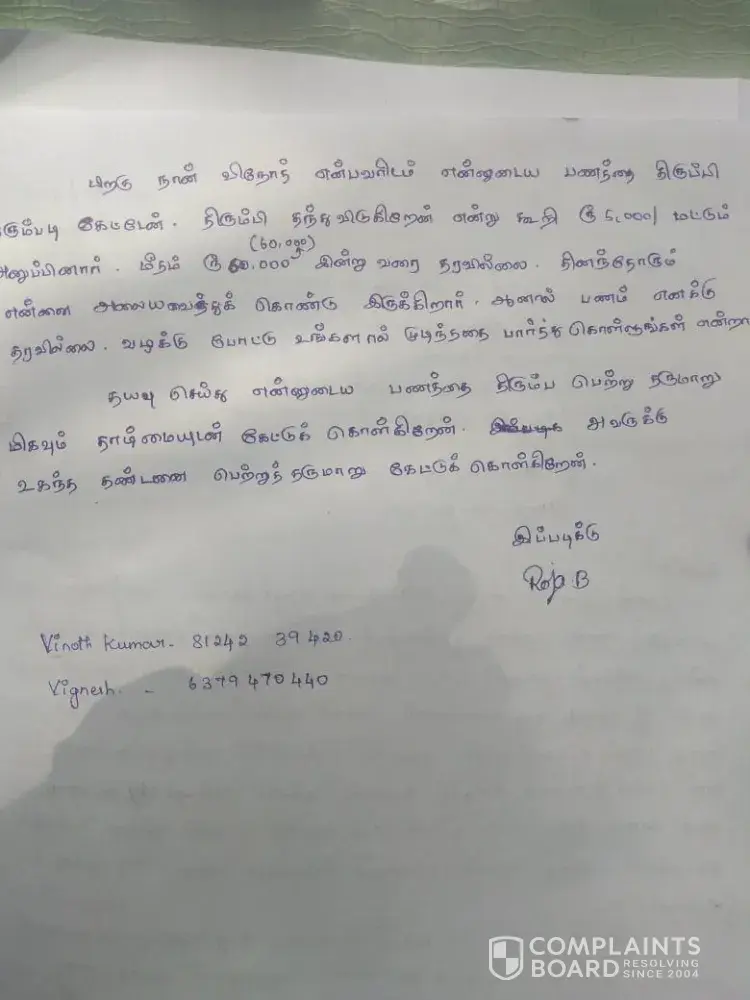 பிறகு நான் வினோத் என்பவரிடம் என்னுடைய பணத்தை திருப்பி
தரும்படி கேட்டேன். திரும்பி தந்து விடுகிறேன் என்று கூறி ரூ 5,000/ மட்டும்
(60,000)
அனுப்பினார். மீதம் ரூ 60,000 இன்று வரை தரவில்லை. தினந்தோரும்
என்னை அலையவைத்துக் கொண்டு இருக்கிறார். ஆனால் பணம் எனக்கு
தரவில்லை. வழக்கு போட்டு உங்களால் முடிந்ததை பார்த்து கொள்ளுங்கள் என்றா
தயவு செய்து என்னுடைய பணத்தை திரும்ப பெற்று தருமாறு
மிகவும் தாழ்மையுடன் கேட்டுக் கொள்கிறேன். அவருக்கு
உகந்த தண்டனை பெற்றுத் தருமாறு கேட்டுக் கொள்கிறேன்.
இப்படிக்கு
Raja B
Vinoth Kumar- 81242 39420.
Vignesh. - 6379470440
COMPLAINTS
BOARD RESOLVING SINCE 2004